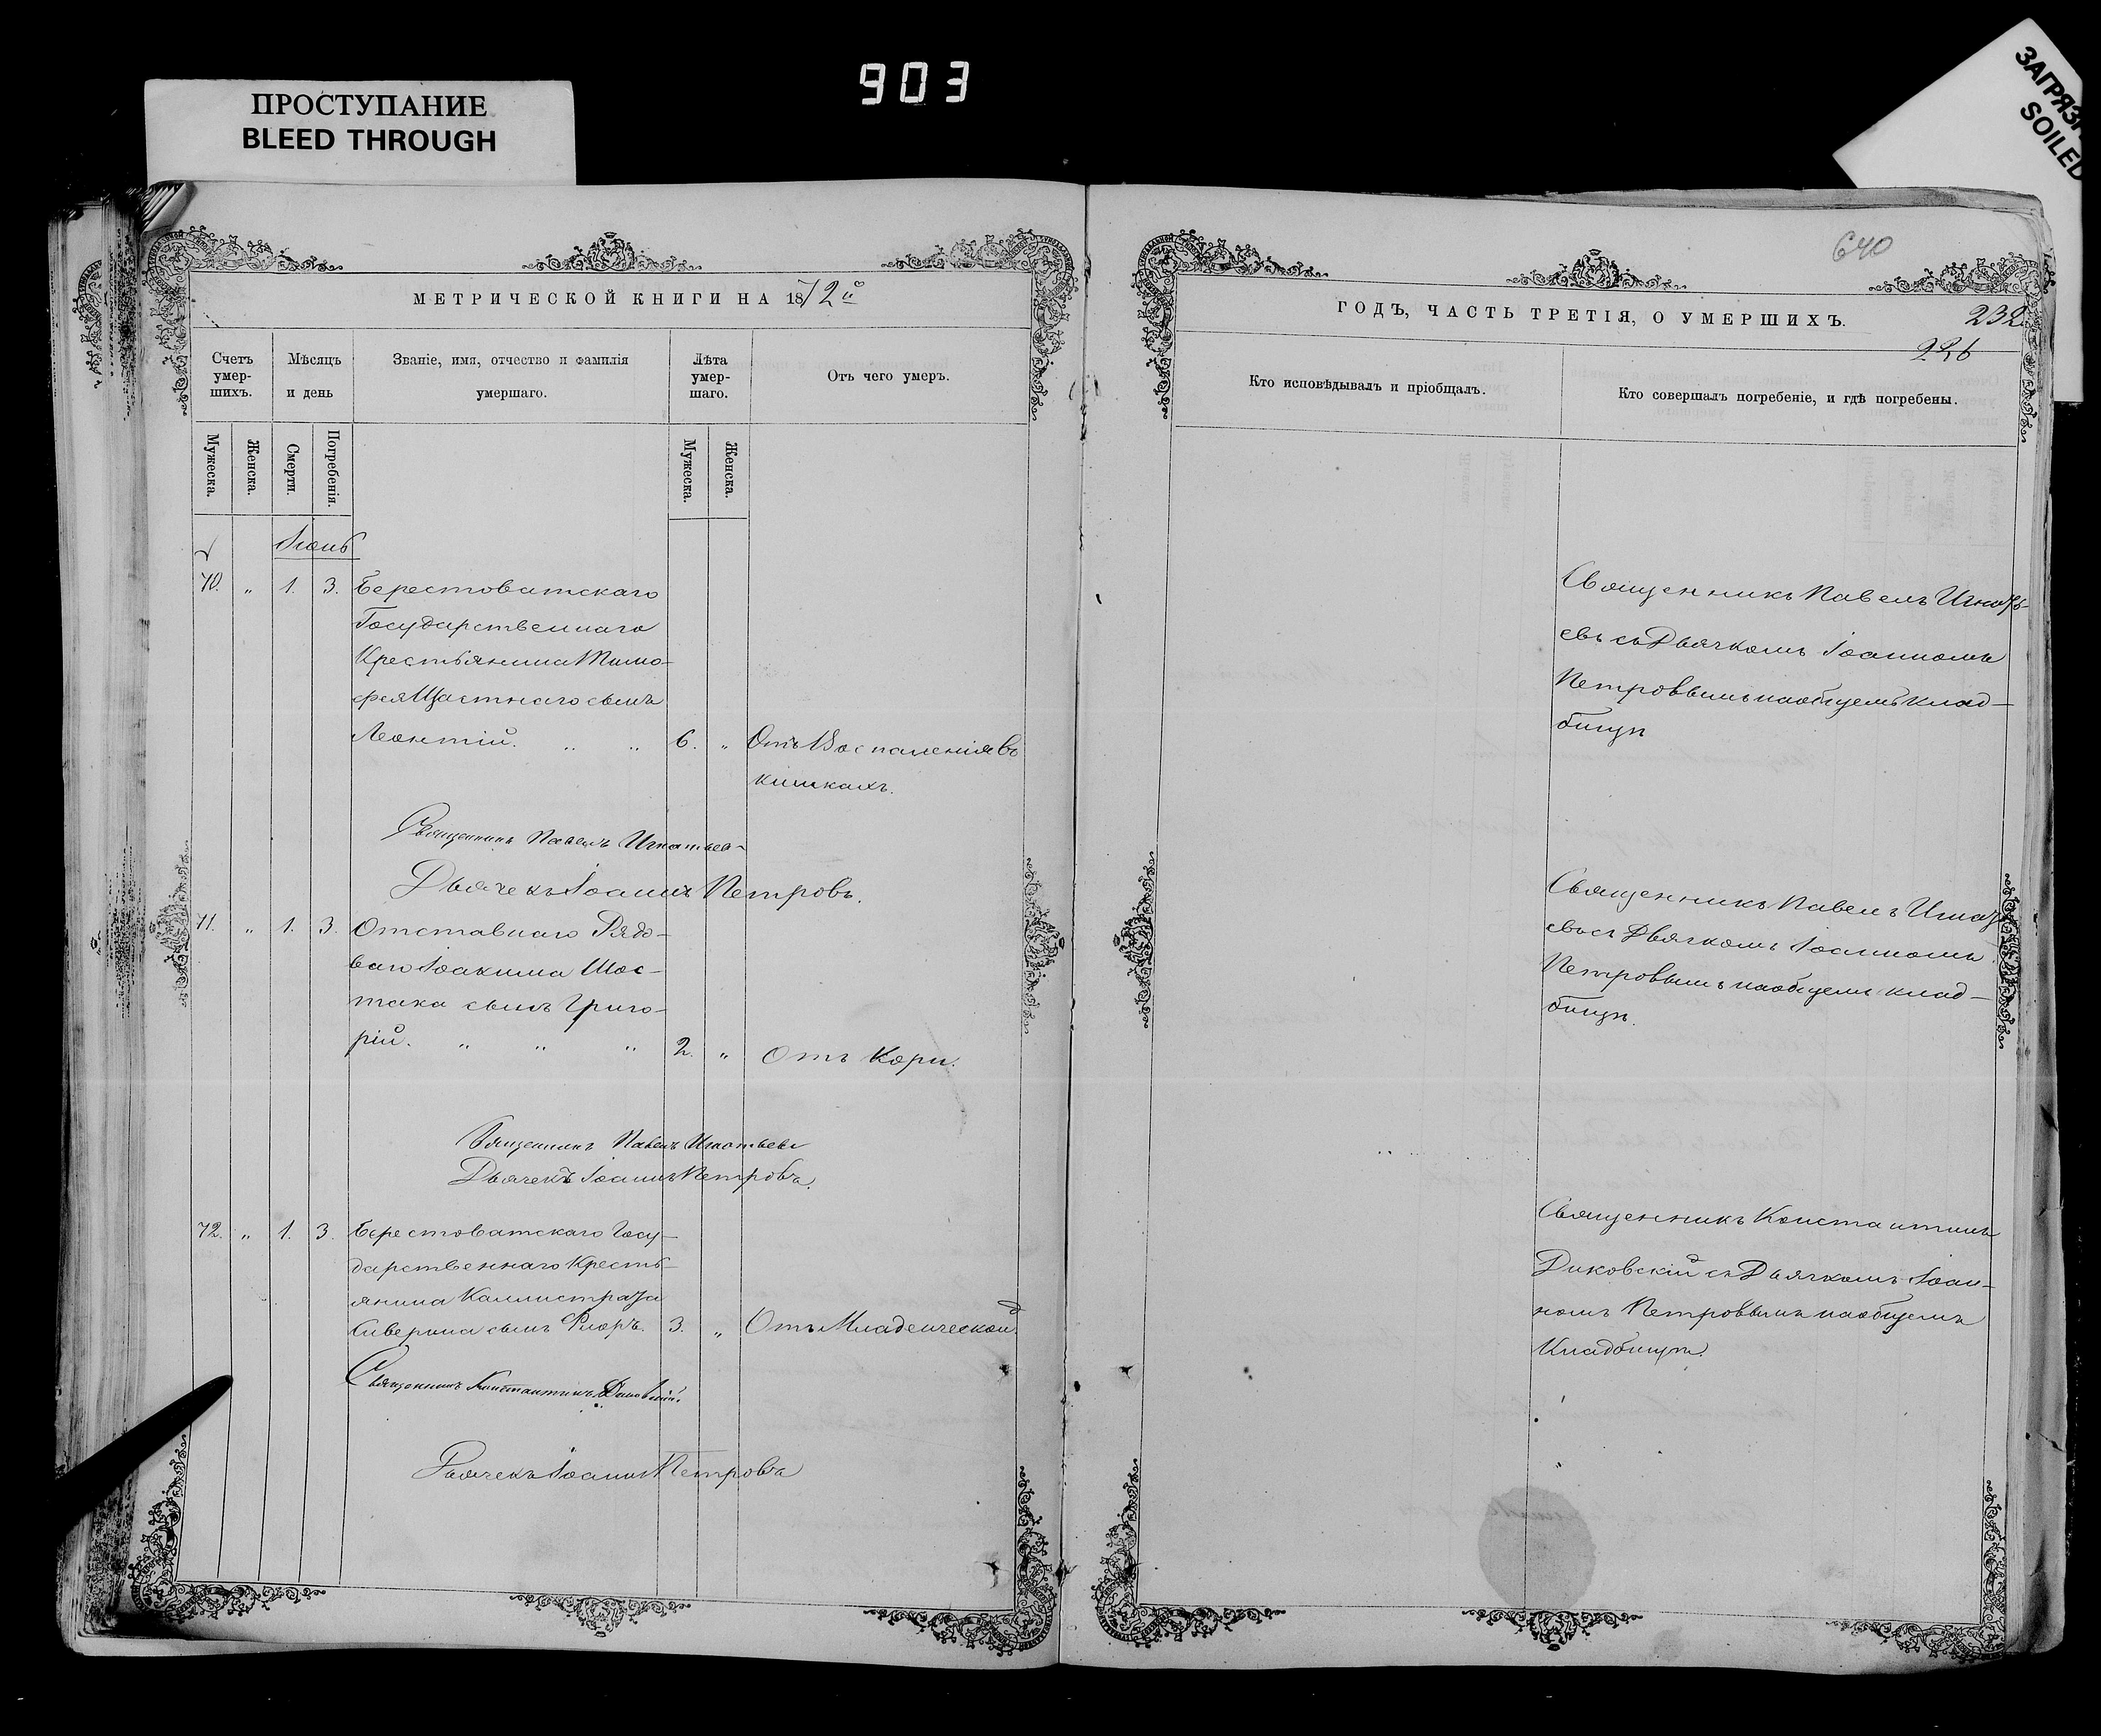 903
ПРОСТУПАНИЕ
BLEED THROUGH
SOILED
640
МЕТРИЧЕСКОЙ КНИГИ НА 1872й
Счетъ умер-шихъ.
Мѣсяцъ и день
Званіе, имя, отчество и фамилія умершаго.
Лѣта умер-шаго.
Отъ чего умеръ.
Мужеска.
Женска.
Смерти.
Погребенія.
Мужеска.
Женска.
Іюнь
70. " 1. 3. Берестоватскаго
Государственнаго
Крестьянина Тимо-
фея Щастнаго сынъ
Леонтій. " " 6. " Отъ Воспаленія въ
кишкахъ.
Священникъ Павелъ Игнатьев
Дьячекъ Іоаннъ Петровъ.
71. " 1. 3. Отставнаго Рядо-
ваго Іоакима Шос-
така сынъ Григо-
рій. " " " 2. " Отъ Кори.
Священникъ Павелъ Игнатьевъ
Дьячекъ Іоаннъ Петровъ.
72. " 1. 3. Берестоватскаго Госу-
дарственнаго Кресть-
янина Каллистрата
Сиверина сынъ Флоръ. 3. " Отъ Младенческой.
Священникъ Константинъ Диковскій.
Дьячекъ Іоаннъ Петровъ
ГОДЪ, ЧАСТЬ ТРЕТІЯ, О УМЕРШИХЪ.
232
226
Кто исповѣдывалъ и пріобщалъ.
Кто совершалъ погребеніе, и гдѣ погребены.
Священникъ Павелъ Игнать-
евъ съ Дьячкомъ Іоанномъ
Петровымъ на общемъ клад-
бищѣ
Священникъ Павелъ Игнать
евъ съ Дьячкомъ Іоанномъ
Петровымъ на общемъ клад-
бищѣ.
Священникъ Константинъ
Диковскій съ Дьячкомъ Іоан-
номъ Петровымъ на общемъ
Кладбищѣ.